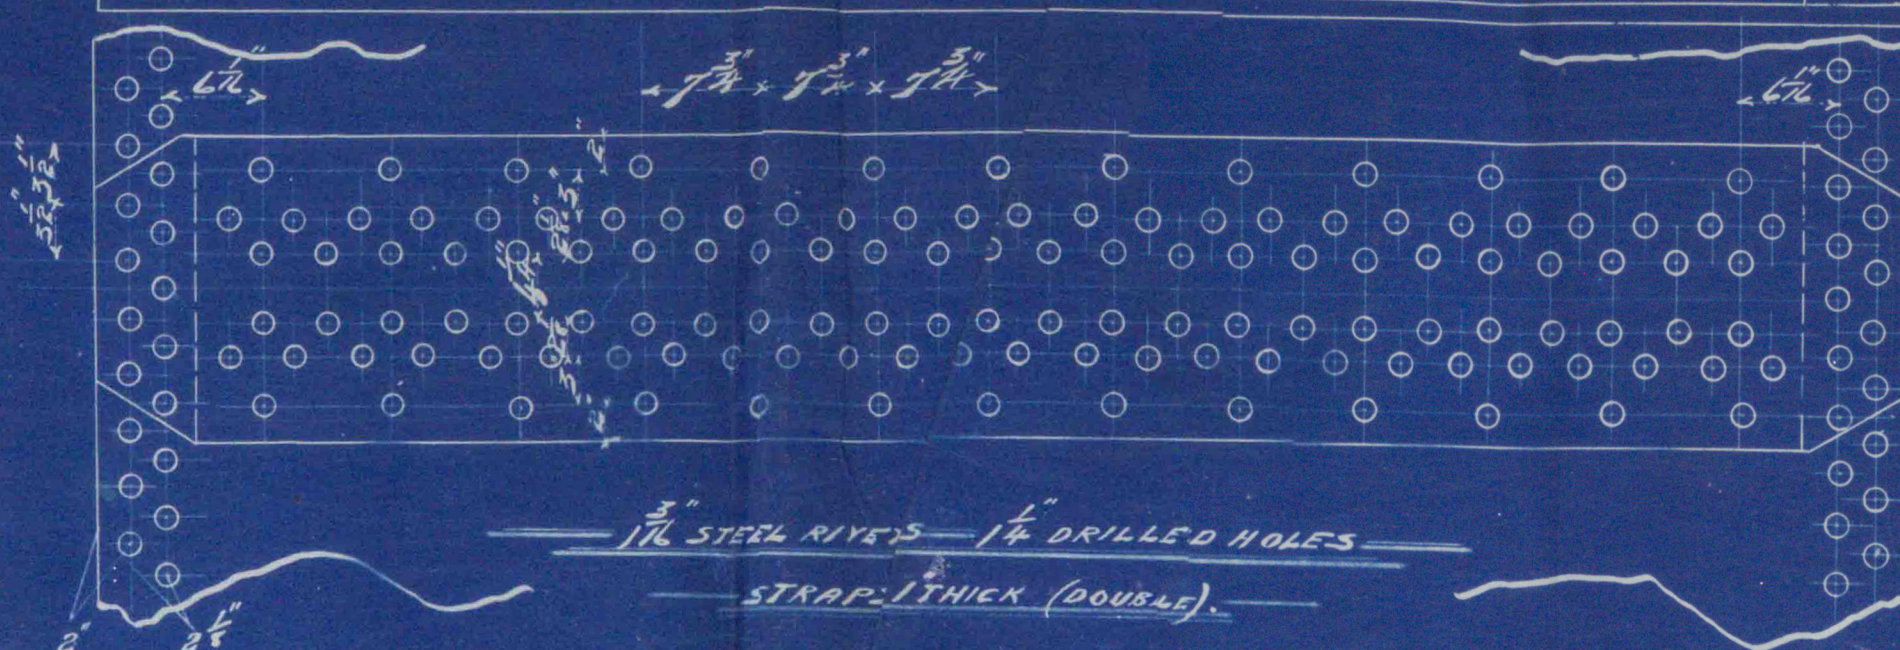 6 1/16"
7 3/4" × 7 3/4" × 7 3/4"
6 1/16"
2"
3"
3"
2"
1 3/16" STEEL RIVETS — 1 1/4" DRILLED HOLES
STRAP: 1" THICK (DOUBLE).
2"
2 1/8"